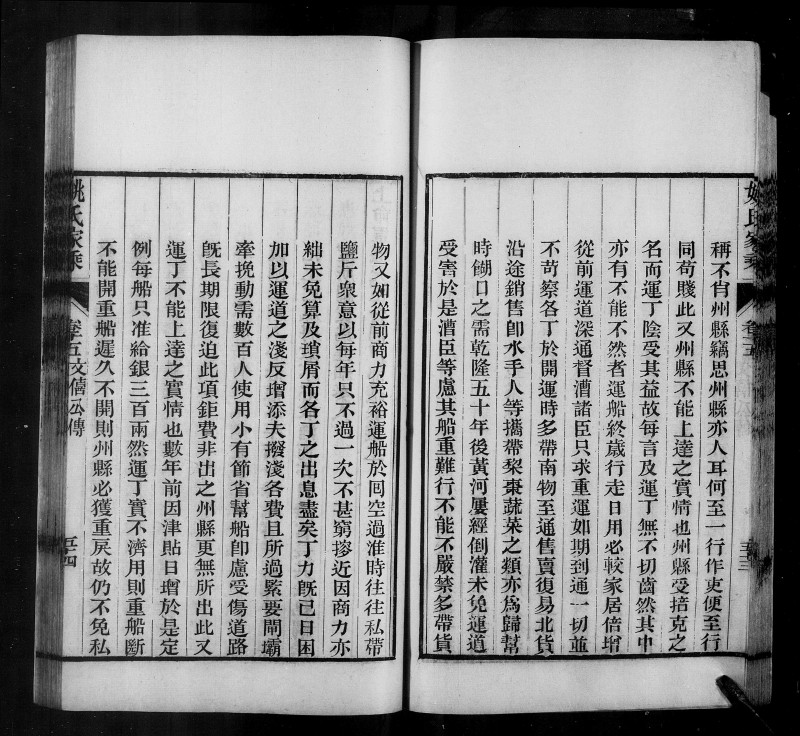 姚氏家乘
卷十五
三十三
稱不肖州縣竊思州縣亦人耳何至一行作吏便至行
同苟賤此又州縣不能上達之實情也州縣受掊克之
名而運丁陰受其益故每言及運丁無不切齒然其中
亦有不能不然者運船終歲行走日用必較家居倍增
從前運道深通督漕諸臣只求重運如期到通一切並
不苛察各丁於開運時多帶南物至通售賣復易北貨
沿途銷售卽水手人等攜帶棃棗蔬菜之類亦爲歸幫
時餬口之需乾隆五十年後黃河屢經倒灌未免運道
受害於是漕臣等慮其船重難行不能不嚴禁多帶貨
物又如從前商力充裕運船於囘空過淮時往往私帶
鹽斤衆意以每年只不過一次不甚窮搜近因商力亦
絀未免算及瑣屑而各丁之出息盡矣丁力旣已日困
加以運道之淺反增添夫撥淺各費且所過緊要閘壩
牽挽動需數百人使用小有節省幫船卽慮受傷道路
旣長期限復迫此項鉅費非出之州縣更無所出此又
運丁不能上達之實情也數年前因津貼日增於是定
例每船只准給銀三百兩然運丁實不濟用則重船斷
不能開重船遲久不開則州縣必獲重戾故仍不免私
姚氏家乘
卷十五文僖公傳
三十四